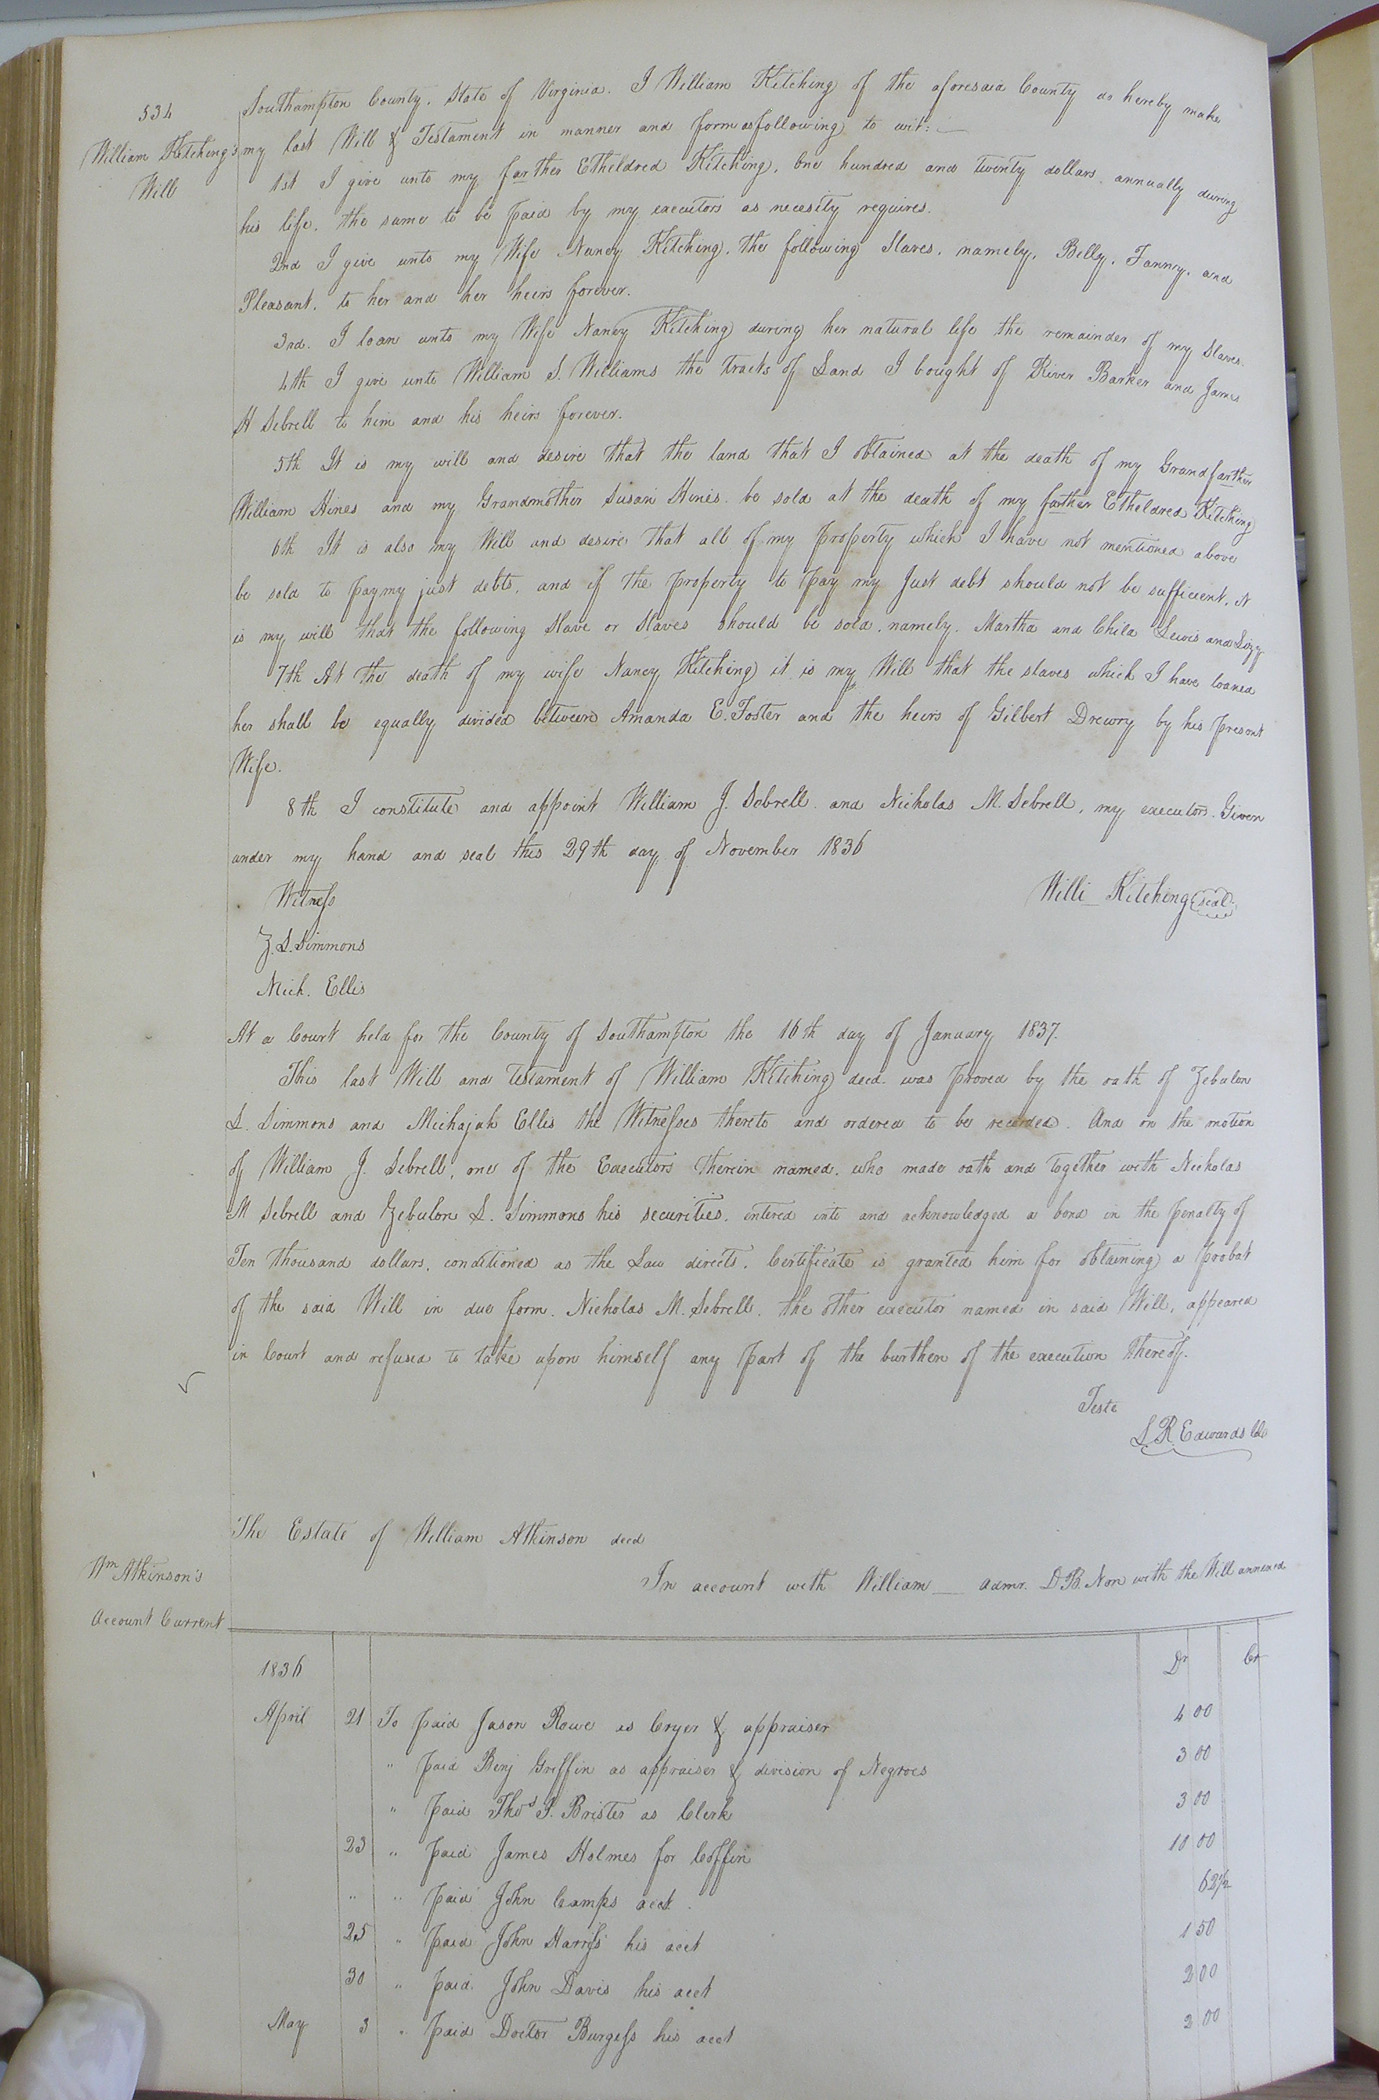 534
William Kitching's
Will
Southampton County, State of Virginia. I William Kitching of the aforesaid County do hereby make
my last Will & Testament in manner and form as following to wit:
1st I give unto my farther Etheldred Kitching, One hundred and twenty dollars annually during
his life, the same to be paid by my executors as necesity requires.
2nd I give unto my Wife Nancy Kitching, the following Slaves, namely, Billy, Fanny, and
Pleasant, to her and her heirs forever.
3rd. I loan unto my Wife Nancy Kitching during her natural life the remainder of my Slaves.
4th I give unto William S. Williams the tracts of Land I bought of River Barker and James
H Sebrell to him and his heirs forever.
5th It is my will and desire that the land that I obtained at the death of my Grandfarther
William Hines and my Grandmother Susan Hines be sold at the death of my farther Etheldred Kitching
6th It is also my Will and desire that all of my property which I have not mentioned above
be sold to pay my just debts, and if the property to pay my just debt should not be sufficient, it
is my will that the following Slave or Slaves should be sold, namely, Martha and Child Lewis and Lizzy
7th At the death of my wife Nancy Kitching it is my Will that the slaves which I have loaned
her shall be equally divided between Amanda E. Foster and the heirs of Gilbert Drewry by his present
Wife.
8th I constitute and appoint William J. Sebrell and Nicholas M. Sebrell, my executors. Given
under my hand and seal this 29th day of November 1836
Willi Kitching seal
Witness
Z. S. Simmons
Mich. Ellis
At a Court held for the County of Southampton the 16th day of January 1837.
This last Will and Testament of William Kitching decd. was proved by the oath of Zebulon
S. Simmons and Michajah Ellis the Witnesses thereto and ordered to be recorded. And on the motion
of William J. Sebrell, one of the Executors therein named, who made oath and together with Nicholas
M Sebrell and Zebulon S. Simmons his securities, entered into and acknowledged a bond in the penalty of
Ten thousand dollars, conditioned as the Law directs, Certificate is granted him for obtaining a probat
of the said Will in due form. Nicholas M. Sebrell, the other executor named in said Will, appeared
in Court and refused to take upon himself any part of the burthen of the execution thereof.
Teste
L. R. Edwards Clk
Wm Atkinson's
Account Current
The Estate of William Atkinson decd
In account with William admr. D. B. Non with the Will annexed
1836 Dr Cr
April 21 To paid Jason Rowe as Cryer & appraiser 4 00
" paid Benj Griffin as appraiser & division of Negroes 3 00
" paid Thos P. Brister as Clerk 3 00
23 " paid James Holmes for Coffin 10 00
" " paid John Camps acct 62½
25 " paid John Harriss his acct 1 50
30 " paid John Davis his acct 2 00
May 3 " paid Doctor Burgess his acct 2 00